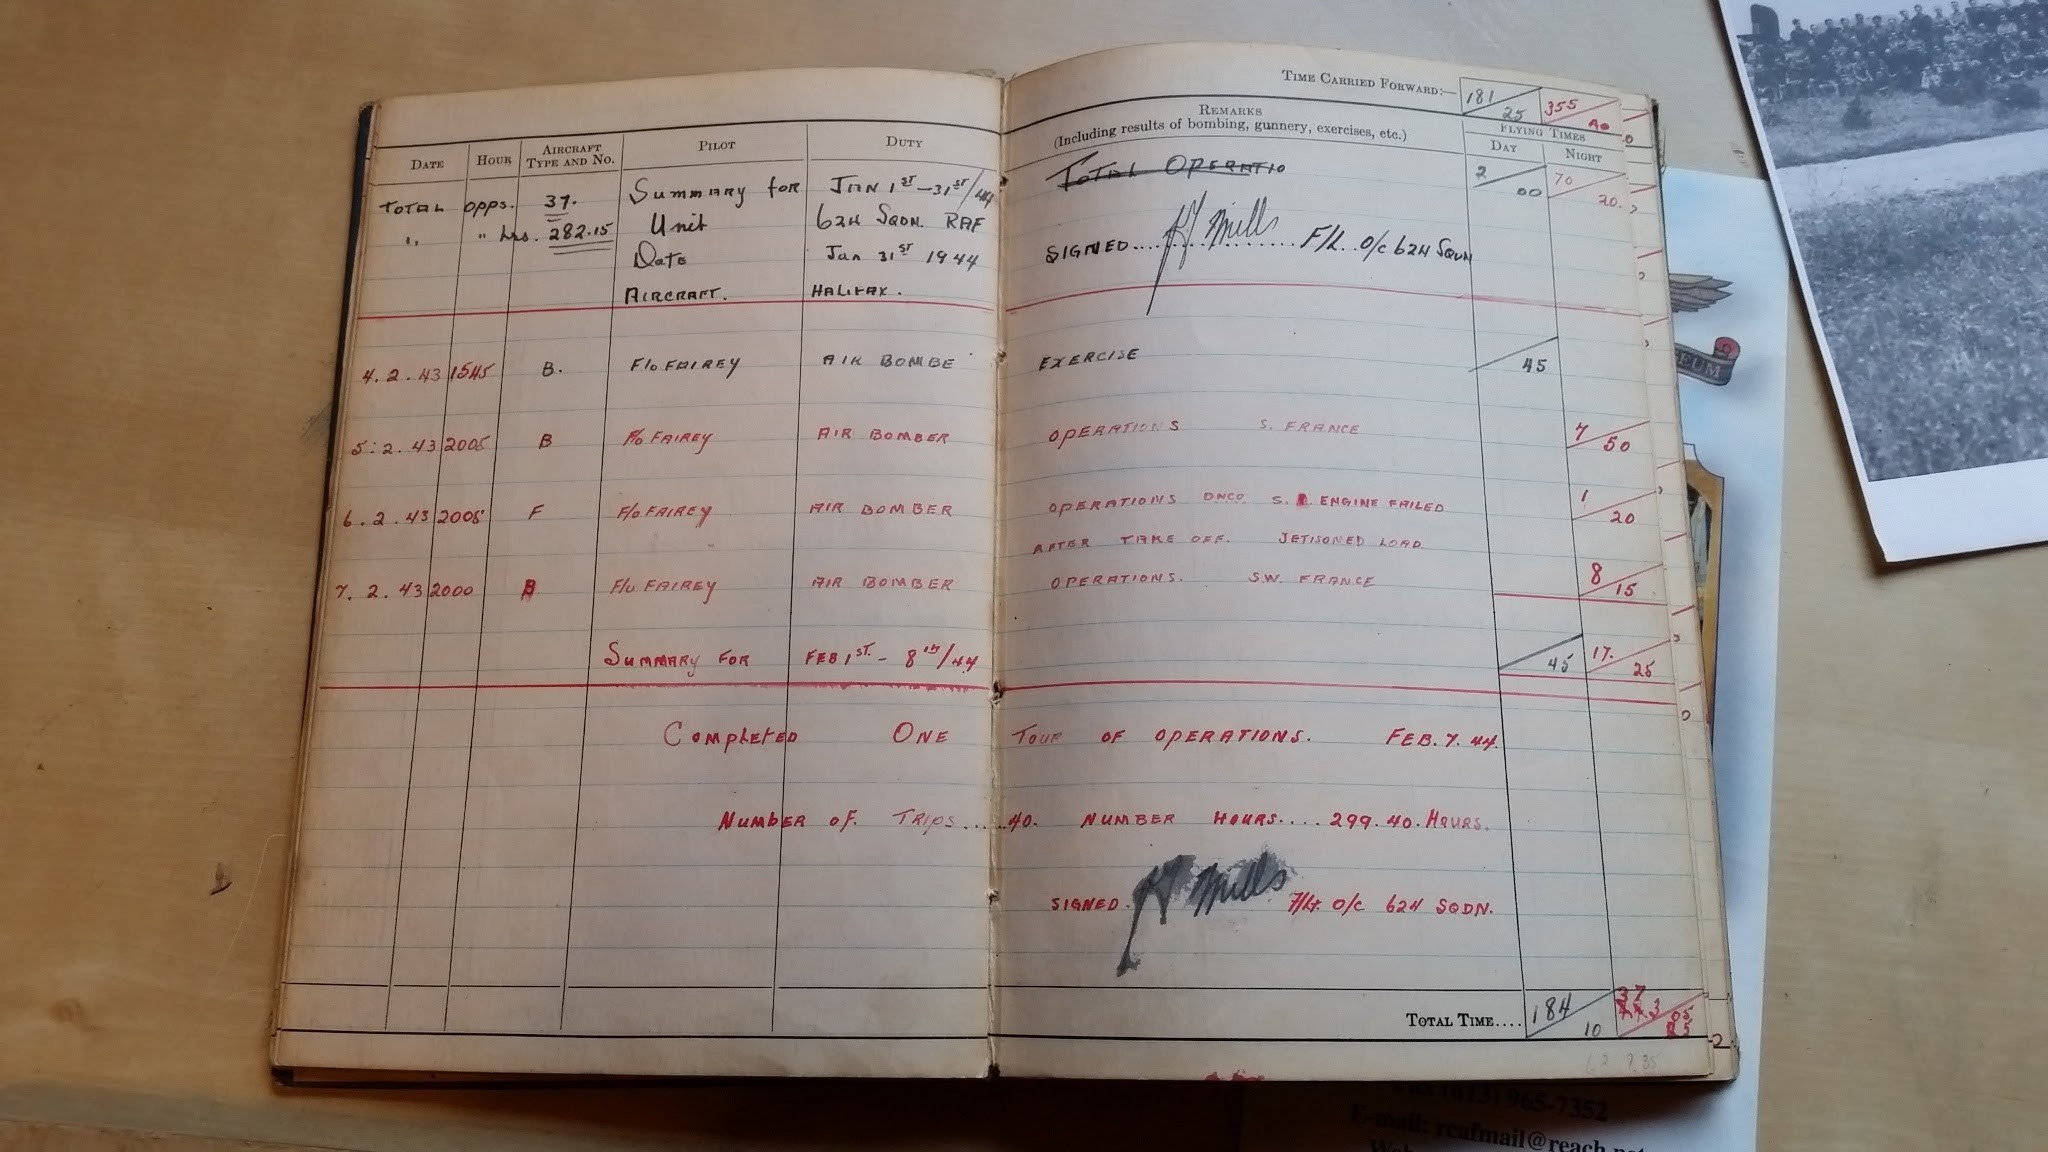 TIME CARRIED FORWARD:— 181 25 355 40
DATE HOUR AIRCRAFT TYPE AND NO. PILOT DUTY REMARKS (Including results of bombing, gunnery, exercises, etc.) FLYING TIMES DAY NIGHT
TOTAL OPPS. 37. SUMMARY FOR JAN 1ST-31ST/44 TOTAL OPERATIO 2 00 70 20.
" " hrs. 282.15 Unit 624 SQDN. RAF SIGNED.... Mills ....... F/L. O/C 624 SQDN
Date Jan 31ST 1944
AIRCRAFT. HALIFAX.
4.2.43 1545 B. F/O FAIREY AIR BOMBE EXERCISE 45
5:2.43 2005 B F/O FAIREY AIR BOMBER OPERATIONS S. FRANCE 7 50
6.2.43 2005 F F/O FAIREY AIR BOMBER OPERATIONS DNCO. S. ENGINE FAILED 1 20
AFTER TAKE OFF. JETISONED LOAD
7.2.43 2000 F/O FAIREY AIR BOMBER OPERATIONS. S.W. FRANCE 8 15
SUMMARY FOR FEB 1ST. - 8TH/44 45 17. 25
COMPLETED ONE TOUR OF OPERATIONS. FEB. 7. 44.
NUMBER OF. TRIPS.....40. NUMBER HOURS.... 299.40. HOURS.
SIGNED. Mills F/Lt. O/C 624 SQDN.
TOTAL TIME.... 184 10
965-7352
E-mail: rcafmail@reach.net